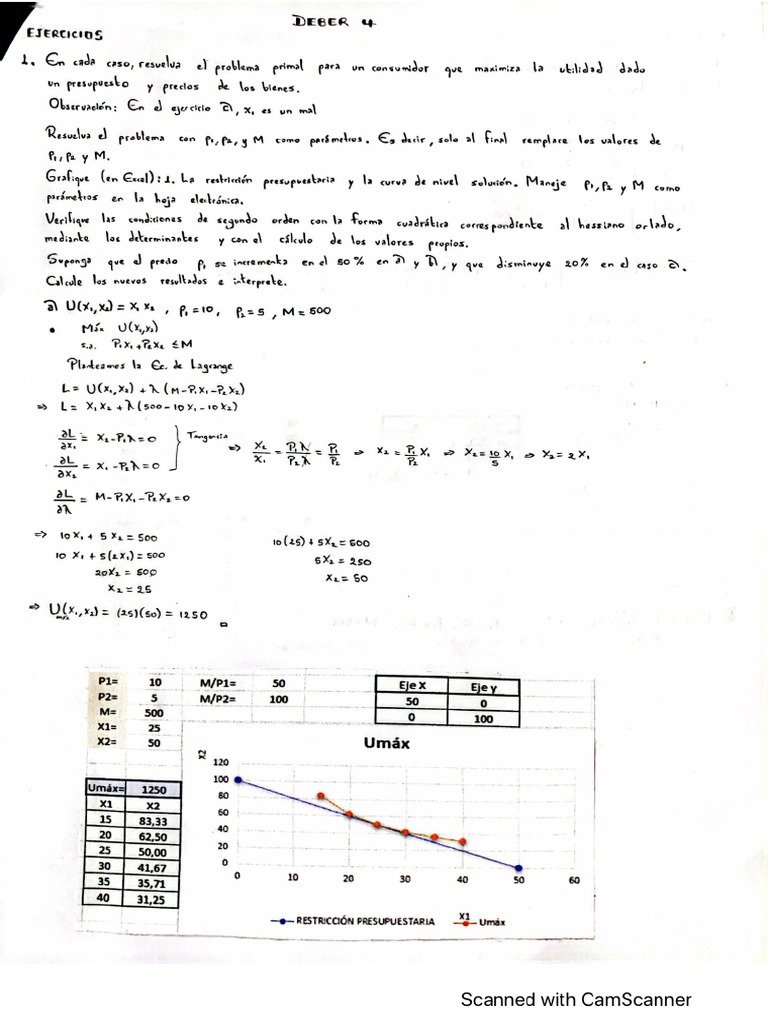 DEBER 4
EJERCICIOS
1. En cada caso, resuelva el problema primal para un consumidor que maximiza la utilidad dado
un presupuesto y precios de los bienes.
Observación: En el ejercicio d), x₁ es un mal
Resuelva el problema con P₁, P₂, y M como parámetros. Es decir, solo al final remplace los valores de
P₁, P₂ y M.
Grafique (en Excel): 1. La restricción presupuestaria y la curva de nivel solución. Maneje P₁, P₂ y M como
parámetros en la hoja electrónica.
Verifique las condiciones de segundo orden con la forma cuadrática correspondiente al hessiano orlado,
mediante los determinantes y con el cálculo de los valores propios.
Suponga que el precio P₁ se incrementa en el 50% en a) y b), y que disminuye 20% en el caso
Calcule los nuevos resultados e interprete.
a) U(x₁,x₂) = x₁ x₂ , P₁=10, P₂=5, M=500
• Máx U(x₁,x₂)
s.a. P₁x₁+P₂x₂ ≤ M
Planteamos la Ec. de Lagrange
L = U(x₁,x₂) + λ (M-P₁x₁-P₂x₂)
⇒ L = x₁x₂ + λ (500-10x₁-10x₂)
∂L/∂x₁ = x₂-P₁λ=0 } Tangencia
∂L/∂x₂ = x₁-P₂λ=0 ⇒ x₂/x₁ = P₁λ/P₂λ = P₁/P₂ ⇒ x₂ = P₁/P₂ x₁ ⇒ x₂ = 10/5 x₁ ⇒ x₂ = 2x₁
∂L/∂λ = M-P₁x₁-P₂x₂=0
⇒ 10x₁ + 5x₂ = 500
10x₁ + 5(2x₁) = 500
20x₂ = 500
x₂ = 25
10(25) + 5x₂ = 500
5x₂ = 250
x₂ = 50
⇒ U(x₁,x₂) = (25)(50) = 1250
máx
P1= 10 M/P1= 50
P2= 5 M/P2= 100
M= 500
X1= 25
X2= 50
Eje X Eje y
50 0
0 100
Umáx= 1250
X1 X2
15 83,33
20 62,50
25 50,00
30 41,67
35 35,71
40 31,25
Umáx
X2
120
100
80
60
40
20
0
0 10 20 30 40 50 60
X1
RESTRICCIÓN PRESUPUESTARIA Umáx
Scanned with CamScanner